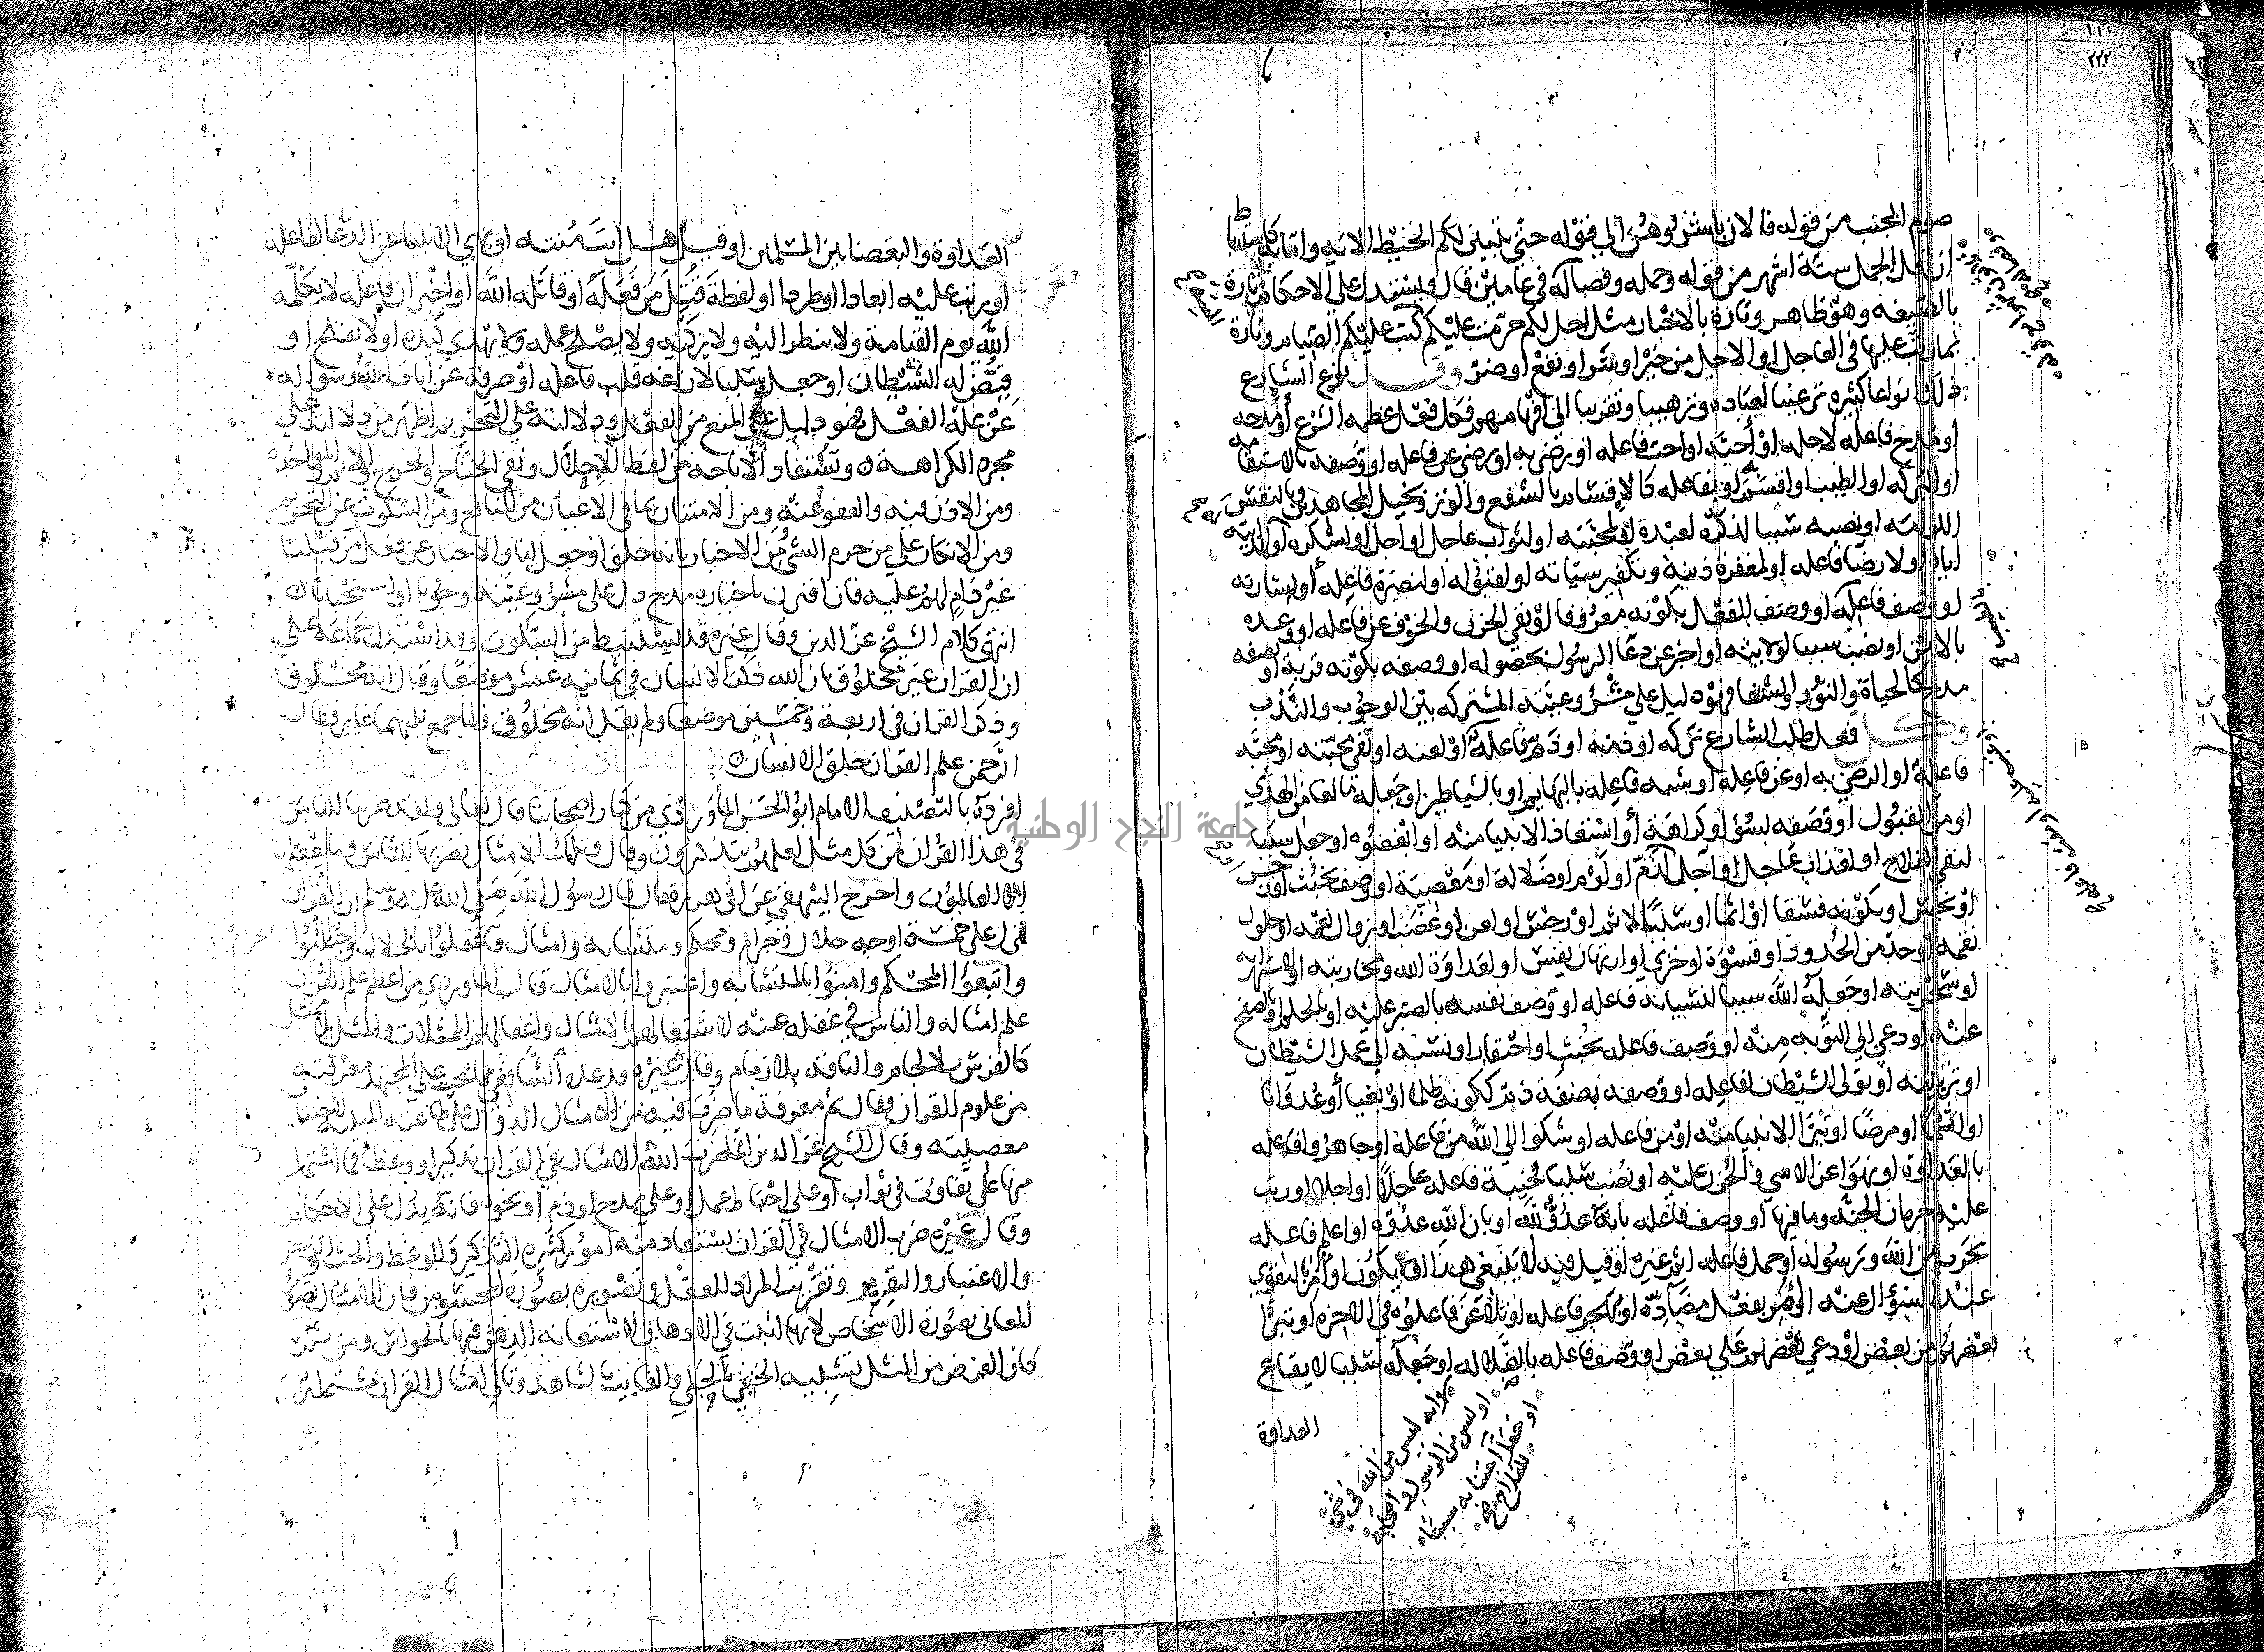 صوم الجنب من قوله فالان باشروهن الي قوله حتى يتبين لكم الخيط الاية واما
ان اقل الحمل ستة اشهر من قوله وحمله وفصاله في عامين قال ويستدل علي الاحكام تارة
بالصيغه وهو ظاهر وتارة بالاخبار مثل احل لكم حرمت عليكم كتب عليكم الصيام وتارة
بما رتب عليها في العاجل او الاجل من خير او شر او نفع او ضر وقد نوع الشارع
ذلك انواعا كثيره ترغيبا لعباده وترهيبا وتقريبا الي افهامهم فكل فعل عظمه الشرع او مدحه
او مدح فاعله لاجله او احبه او احب فاعله او رضي به او رضي عن فاعله او وصفه بالاستقامه
او البركه او الطيب او اقسم به او بفاعله كالاقسام بالشفع والوتر وبخيل المجاهدين وبالنفس
اللوامه او نصبه سببا لذكره لعبده او لمحبته او لثواب عاجل او اجل او لشكره او لهدايته
اياه او لارضا فاعله او لمغفرة ذنبه وتكفير سياته او لقبوله او لنصرة فاعله او بشارته
او وصف فاعله او وصف الفعل بكونه معروفا او نفي الحزن والخوف عن فاعله او وعده
بالامن او نصب سببا لولايته او اخبر عن دعا الرسول بحصوله او وصفه بكونه قربة او بصفه
مدح كالحياة والنور والشفا فهو دليل علي مشروعيته المشتركه بين الوجوب والندب
وكل فعل طلب الشارع تركه او ذمه او ذم فاعله او لعنه او نفي محبته او محبه
فاعله او الرضي به او عن فاعله او شبه فاعله بالبهايم او بالشياطين او جعله مانعا من الهدي
او من القبول او وصفه بسؤ او كراهة او استعاذ الانبيا منه او ابغضوه او جعل سببا
لنفي الفلاح او لعذاب عاجل او آجل لذم او لوم او ضلالة او معصية او وصف بخبث او رجس
او نجس او بكونه فسقا او اثما او سببا لاثم او رجس او لعن او غضب او زوال نعمه او حلول
نقمه او حد من الحدود او قسوة او خزي او ارتهان نفس او لعداوة الله ومحاربته او لاستهزايه
او سخريته او جعله الله سببا لنسيانه فاعله او وصف نفسه بالصبر عليه او بالحلم او بالصفح
عنه او دعي الي التوبه منه او وصف فاعله بخبث او احتقار او نسبه الي عمل الشيطان
او تزيينه او تولي الشيطان لفاعله او وصفه بصفة ذم ككونه ظلما او بغيا او عدوانا
او اثما او مرضا او تبرا الانبيا منه او من فاعله او شكوا الي الله من فاعله او جاهروا فاعله
بالعداوة او نهوا عن الاسي والحزن عليه او نصب سببا لخيبة فاعله عاجلا او اجلا او رتب
عليه حرمان الجنة وما فيها او وصف فاعله بانه عدو لله او بان الله عدوه او اعلم فاعله
بحرب من الله ورسوله او حمل فاعله اثم غيره او قيل فيه لا ينبغي هذا او لا يكون او امر بالتقوي
عند السؤال عنه او امر بفعل مضاده او بهجر فاعله او تلاعن فاعلوه في الاخره او تبرا
بعضهم من بعض او دعي بعضهم علي بعض او وصف فاعله بالضلاله او جعله سببا لايقاع
العداوة
او انه ليس من الله في شي
او ليس من الرسول واصحابه
او جعل اجتنابه سببا
للفلاح صح
العداوة والبغضا بين المسلمين او قيل هل انت منته او نهي الانبيا عن الدعا لفاعله
او رتب عليه ابعادا او طردا او لفظة قتل من فعله او قاتله الله او اخبر ان فاعله لا يكلمه
الله يوم القيامة ولا ينظر اليه ولا يزكيه ولا يصلح عمله ولا يهدي كيده او لا يفلح او
قيض له الشيطان او جعل سببا لازاغه قلب فاعله او صرفه عن ايات الله وسؤاله
عن علة الفعل فهو دليل علي المنع من الفعل ودلالته على التحريم اظهر من دلالته علي
مجرد الكراهة وتستفاد الاباحه من لفظ الاحلال ونفي الجناح والحرج والاثم والمواخذه
ومن الاذن فيه والعفو عنه ومن الامتنان بما في الاعيان من المنافع ومن السكوت عن التحريم
ومن الانكار علي من حرم الشي من الاخبار بانه خلق او جعل لنا والاخبار عن فعل من قبلنا
غير ذام لهم عليه فان اقترن باخباره مدح دل على مشروعيته وجوبا او استحبابا
انتهي كلام الشيخ عز الدين وقال غيره قد يستنبط من السكوت وقد استدل جماعة علي
ان القران غير مخلوق بان الله ذكر الانسان في ثمانيه عشر موضعا وقال انه مخلوق
وذكر القران في اربعة وخمسين موضعا ولم يقل انه مخلوق ولما جمع بينهما غاير فقال
الرحمن علم القران خلق الانسان
افرده بالتصنيف الامام ابو الحسن الماوردي من كبار اصحابنا قال تعالي ولقد ضربنا للناس
في هذا القران من كل مثل لعلهم يتذكرون وقال وتلك الامثال نضربها للناس وما يعقلها
الا العالمون واخرج البيهقي عن ابي هريرة قال قال رسول الله صلي الله عليه وسلم ان القران
نزل علي خمسة اوجه حلال وحرام ومحكم ومتشابه وامثال فاعملوا بالحلال واجتنبوا
واتبعوا المحكم وامنوا بالمتشابه واعتبروا بالامثال قال الماوردي من اعظم علم القران
علم امثاله والناس في غفله عنه لاشتغالهم بالامثال واغفالهم الممثلات والمثل بلا ممثل
كالفرس بلا لجام والناقه بلا زمام وقال غيره قد عده الشافعي مما يجب علي المجتهد معرفته
من علوم القران فقال ثم معرفة ما ضرب فيه من الامثال الدوال علي طاعته المبينه لاجتناب
معصيته وقال الشيخ عز الدين انما ضرب الله الامثال في القران تذكيرا ووعظا فما اشتمل
منها علي تفاوت في ثواب او علي احباط عمل او علي مدح او ذم او نحوه فانه يدل علي الاحكام
وقال غيره ضرب الامثال في القران يستفاد منه امور كثيره التذكير والوعظ والحث والزجر
والاعتبار والتقرير وتقريب المراد للعقل وتصويره بصورة المحسوس فان الامثال تصور
المعاني بصورة الاشخاص لانها اثبت في الاذهان لاستعانه الذهن فيها بالحواس ومن ثم
كان الغرض من المثل تشبيه الخفي بالجلي والغايب بالشاهد وتاتي امثال القران مشتملة
جامعة النجاح الوطنية